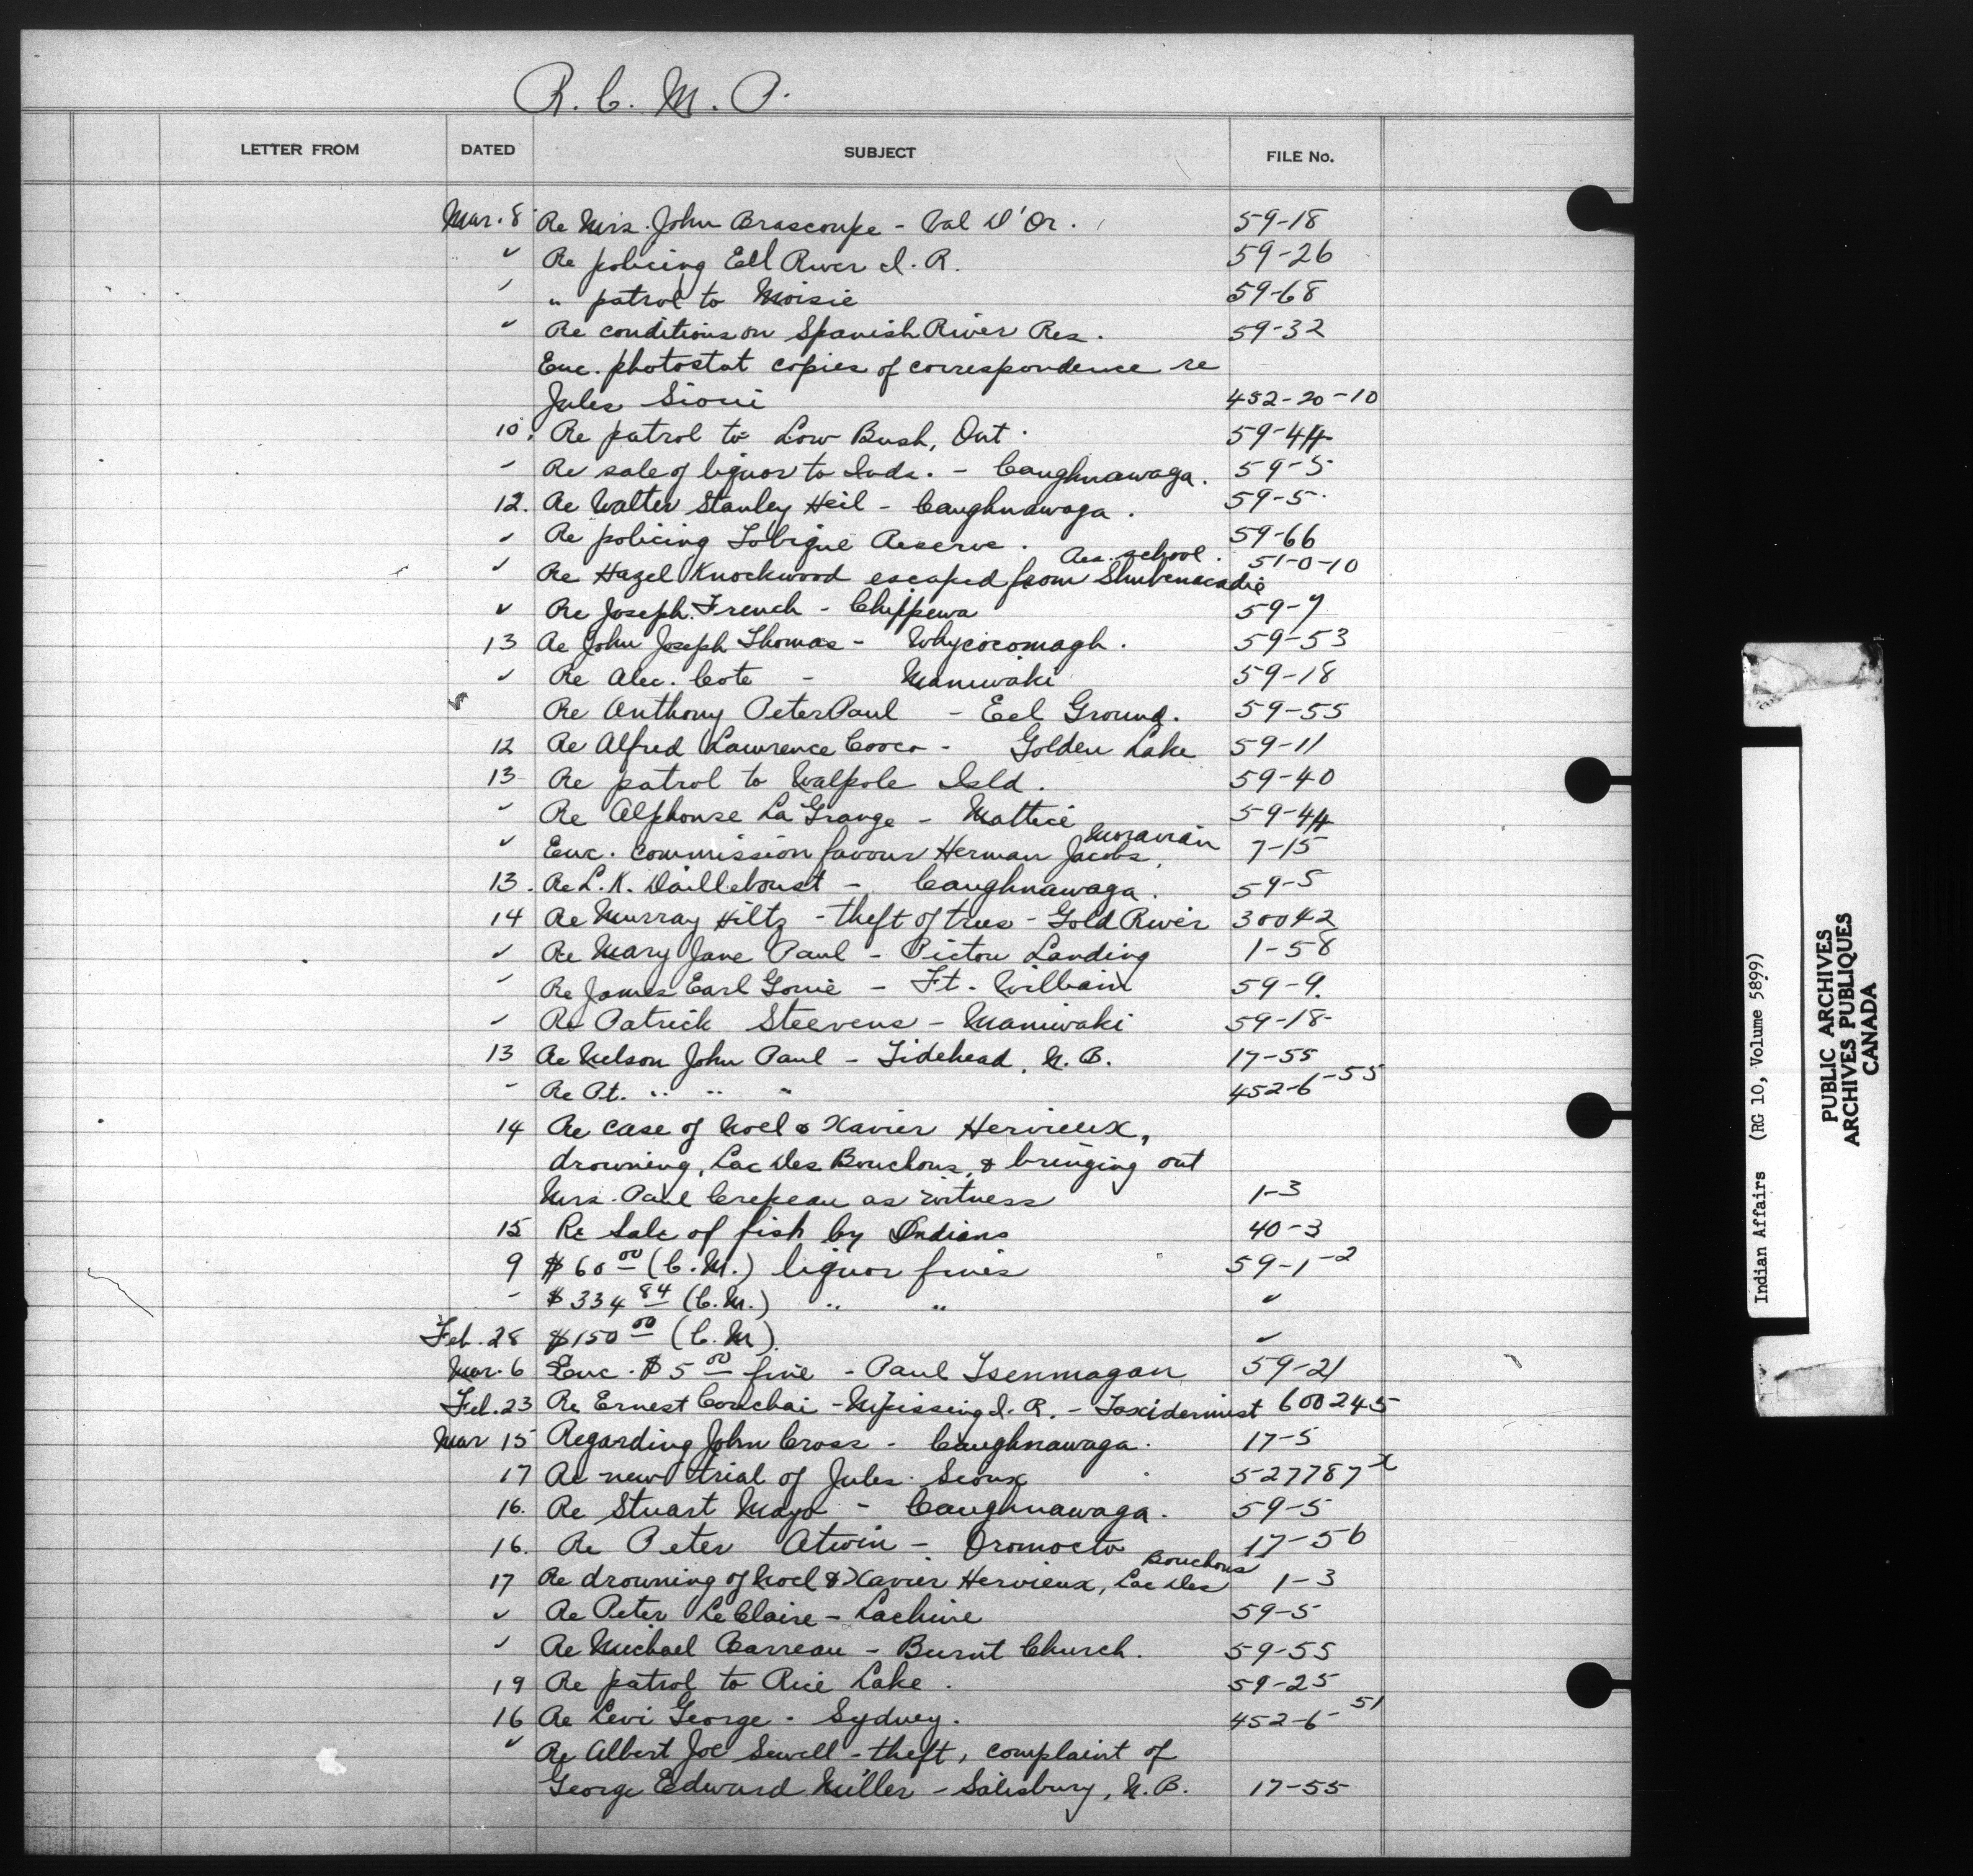 R. C. M. P.
LETTER FROM DATED SUBJECT FILE No.
Mar. 8 Re Mrs. John Brascoupe - Val D'Or. 59-18
✓ Re policing Eel River I. R. 59-26
✓ " patrol to Moisie 59-68
✓ Re conditions on Spanish River Res. 59-32
Enc. photostat copies of correspondence re
Jules Sioui 452-20-10
10. Re patrol to Low Bush, Ont. 59-44
- Re sale of liquor to Inds. - Caughnawaga. 59-5
12. Re Walter Stanley Heil - Caughnawaga. 59-5
✓ Re policing Tobique Reserve. 59-66
Res. school. 51-0-10
✓ Re Hazel Knockwood escaped from Shubenacadie
✓ Re Joseph French - Chippewa 59-7
13 Re John Joseph Thomas - Whycocomagh. 59-53
✓ Re Alec. Cote - Maniwaki 59-18
Re Anthony Peter Paul - Eel Ground. 59-55
12 Re Alfred Lawrence Cooco - Golden Lake 59-11
13 Re patrol to Walpole Isld. 59-40
✓ Re Alphonse La Grange - Mattice 59-44
Moravian
✓ Enc. commission favour Herman Jacobs, 7-15
13. Re L. K. Dailleboust - Caughnawaga. 59-5
14 Re Murray Hiltz - theft of trees - Gold River 30042
✓ Re Mary Jane Paul - Pictou Landing 1-58
- Re James Earl - Ft. William 59-9.
✓ Re Patrick Steevens - Maniwaki 59-18
13 Re Nelson John Paul - Tidehead, N. B. 17-55
- Re Pt. " " " 452-6-55
14 Re case of Noel & Xavier Hervieux,
drowning, Lac Des Bouchons, & bringing out
Mrs. Paul Crepeau as witness 1-3
15 Re Sale of fish by Indians 40-3
9 $60 00 (C. M.) liquor fines 59-1-2
- $334 84 (C. M.) " " ✓
Feb. 28 $150 00 (C. M.) ✓
Mar. 6 Enc. $5 00 fine - Paul Tsenmagan 59-21
Feb. 23 Re Ernest Couchai - Nipissing I. R. - Taxidermist 600245
Mar 15 Regarding John Cross - Caughnawaga. 17-5
17 Re new trial of Jules Sioux 527787 x
16. Re Stuart Mayo - Caughnawaga. 59-5
16. Re Peter Atwin - Oromocto 17-56
Bouchons
17 Re drowning of Noel & Xavier Hervieux, Lac Des 1-3
✓ Re Peter LeClaire - Lachine 59-5
✓ Re Michael Barreau - Burnt Church. 59-55
19 Re patrol to Rice Lake. 59-25
16 Re Levi George - Sydney. 452-6-51
✓ Re Albert Joe Sewell - theft, complaint of
George Edward Miller - Salisbury, N. B. 17-55
Indian Affairs (RG 10, Volume 5899)
PUBLIC ARCHIVES
ARCHIVES PUBLIQUES
CANADA